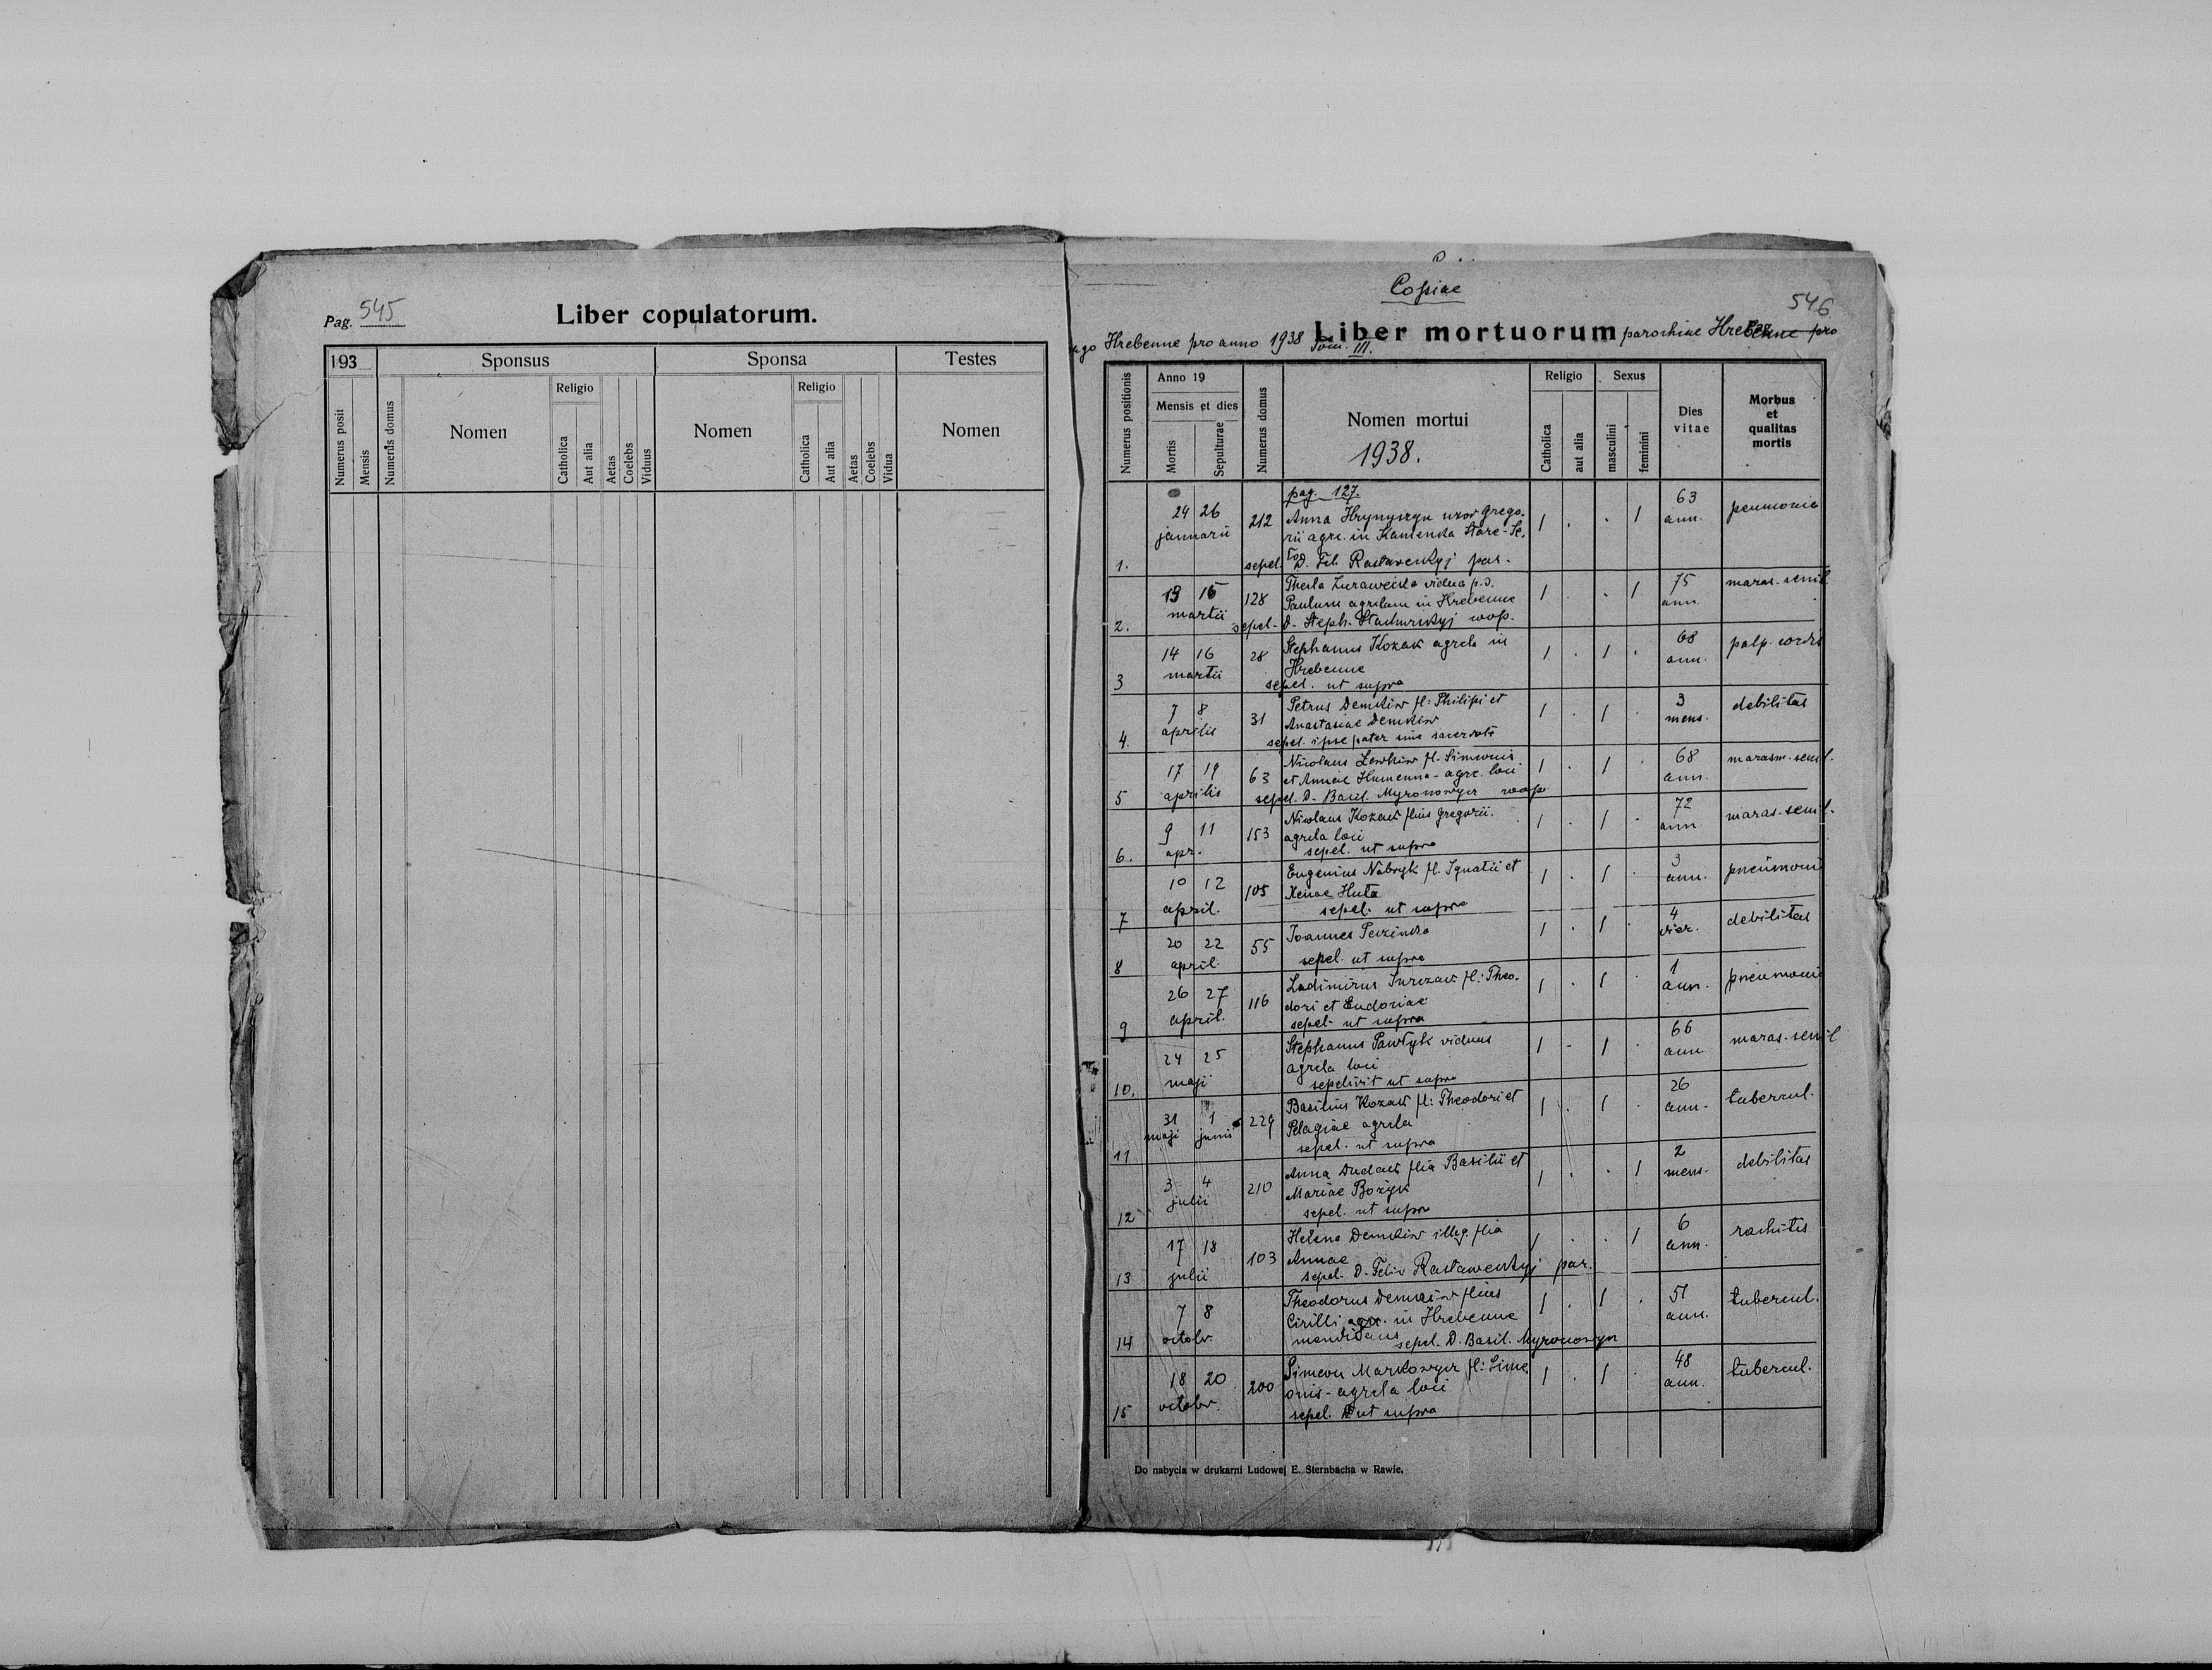 Pag. 545
Liber copulatorum.
193
Sponsus
Sponsa
Testes
Numerus posit
Mensis
Numerus domus
Nomen
Religio
Catholica
Aut alia
Aetas
Coelebs
Viduus
Nomen
Religio
Catholica
Aut alia
Aetas
Coelebs
Vidua
Nomen
Copiae
546
Liber mortuorum parochiae Hrebenne pro
ago Hrebenne pro anno 1938 Tom. III.
Numerus positionis
Anno 19
Mensis et dies
Mortis
Sepulturae
Numerus domus
Nomen mortui
1938.
Religio
Catholica
aut alia
Sexus
masculini
feminini
Dies vitae
Morbus et qualitas mortis
pag. 127.
24 26 212 Anna Hrynyszyn uxor Grego- 1 . . 1 63 ann. pneumonia
januarii rii agre. in Kamenka Stare-Se-
1. sepel. D. Fel. Rastaweckyj par.
13 15 128 Thecla Zurawecka vidua p.d. 1 . . 1 75 ann. maras-senil
martii Paulum agrelam in Hrebenne
2. sepel- D. Steph. Stachurskyj woop.
14 16 28 Stephanus Kozak agrela in 1 . 1 . 68 ann. palp. cordis
martii Hrebenne
3 sepel. ut supra
7 8 31 Petrus Demkiw fl: Philipi et 1 . 1 . 3 mens. debilitas
aprilis Anastasiae Demkiw
4. sepel. ipse pater sine sacerdote
17 19 63 Nicolaus Lewkiw fl. Simeonis 1 . 1 . 68 ann. marasm. senil.
aprilis et Annae Humenna - agre. loci
5 sepel. D. Basil. Myronowycz woop
9 11 153 Nicolaus Kozak flius Gregorii. 1 . 1 . 72 ann. maras-senil.
apr. agrela loci
6. sepel. ut supra
10 12 105 Eugenius Nabryk fl. Ignatii et 1 . 1 . 3 ann. pneumonia
april. Xenae Huta
7 sepel. ut supra
20 22 55 Joannes 1 . 1 . 4 debilitas
april.
8 sepel. ut supra
26 27 116 Ladimirus Jurczak fl: Theo- 1 . 1 . 1 ann. pneumonia
april. dori et Eudoxiae
9 sepel- ut supra
24 25 Stephanus Pawlyk viduus 1 - 1 . 66 ann. maras-senil
maji agrela loci
10. sepelivit ut supra
31 1 229 Basilius Kozak fl: Theodori et 1 . 1 . 26 ann- tubercul.
maji junii Pelagiae agrela
11 sepel. ut supra
3 4 210 Anna Dudak flia Basilii et 1 . . 1 2 mens- debilitas
julii Mariae Bozyk
12 sepel. ut supra
17 18 103 Helena Demkiw illeg. flia 1 . . 1 6 ann. rachitis
julii Annae
13 sepel. D. Felix Rastaweckyj par.
7 8 Theodorus Demkiw flius 1 . 1 . 51 ann. tubercul.
octobr. Cirilli agre. in Hrebenne
14 mendicans sepel. D. Basil. Myronowycz
18 20 200 Simeon Markowycz fl: Sime 1 . 1 . 48 ann. tubercul.
octobr. onis - agrela loci
15 sepel. D ut supra
Do nabycia w drukarni Ludowej E. Sternbacha w Rawie.